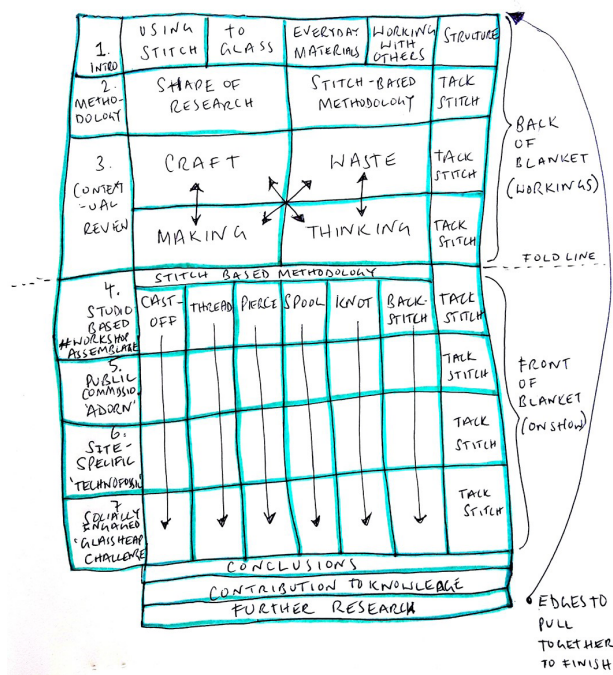 1.
INTRO
USING
STITCH
TO
GLASS
EVERYDAY
MATERIALS
WORKING
WITH
OTHERS
STRUCTURE
2.
METHO-
DOLOGY
SHAPE OF
RESEARCH
STITCH-BASED
METHODOLOGY
TACK
STITCH
3.
CONTEXT
-UAL
REVIEW
CRAFT
WASTE
TACK
STITCH
MAKING
THINKING
TACK
STITCH
BACK
OF
BLANKET
(WORKINGS)
STITCH BASED METHODOLOGY
FOLD LINE
4.
STUDIO
BASED
#WORKSHOP
ASSEMBLAGE
CAST-
OFF
THREAD
PIERCE
SPOOL
KNOT
BACK-
STITCH
TACK
STITCH
5.
PUBLIC
COMMISSIO
'ADORN'
TACK
STITCH
6.
SITE-
SPECIFIC
'TECHNOFOSSIL'
TACK
STITCH
7
SOCIALLY
ENGAGED
'GLASS HEAP
CHALLENGE
TACK
STITCH
FRONT
OF
BLANKET
(ON SHOW)
CONCLUSIONS
CONTRIBUTION TO KNOWLEDGE
FURTHER RESEARCH
EDGES TO
PULL
TOGETHER
TO FINISH